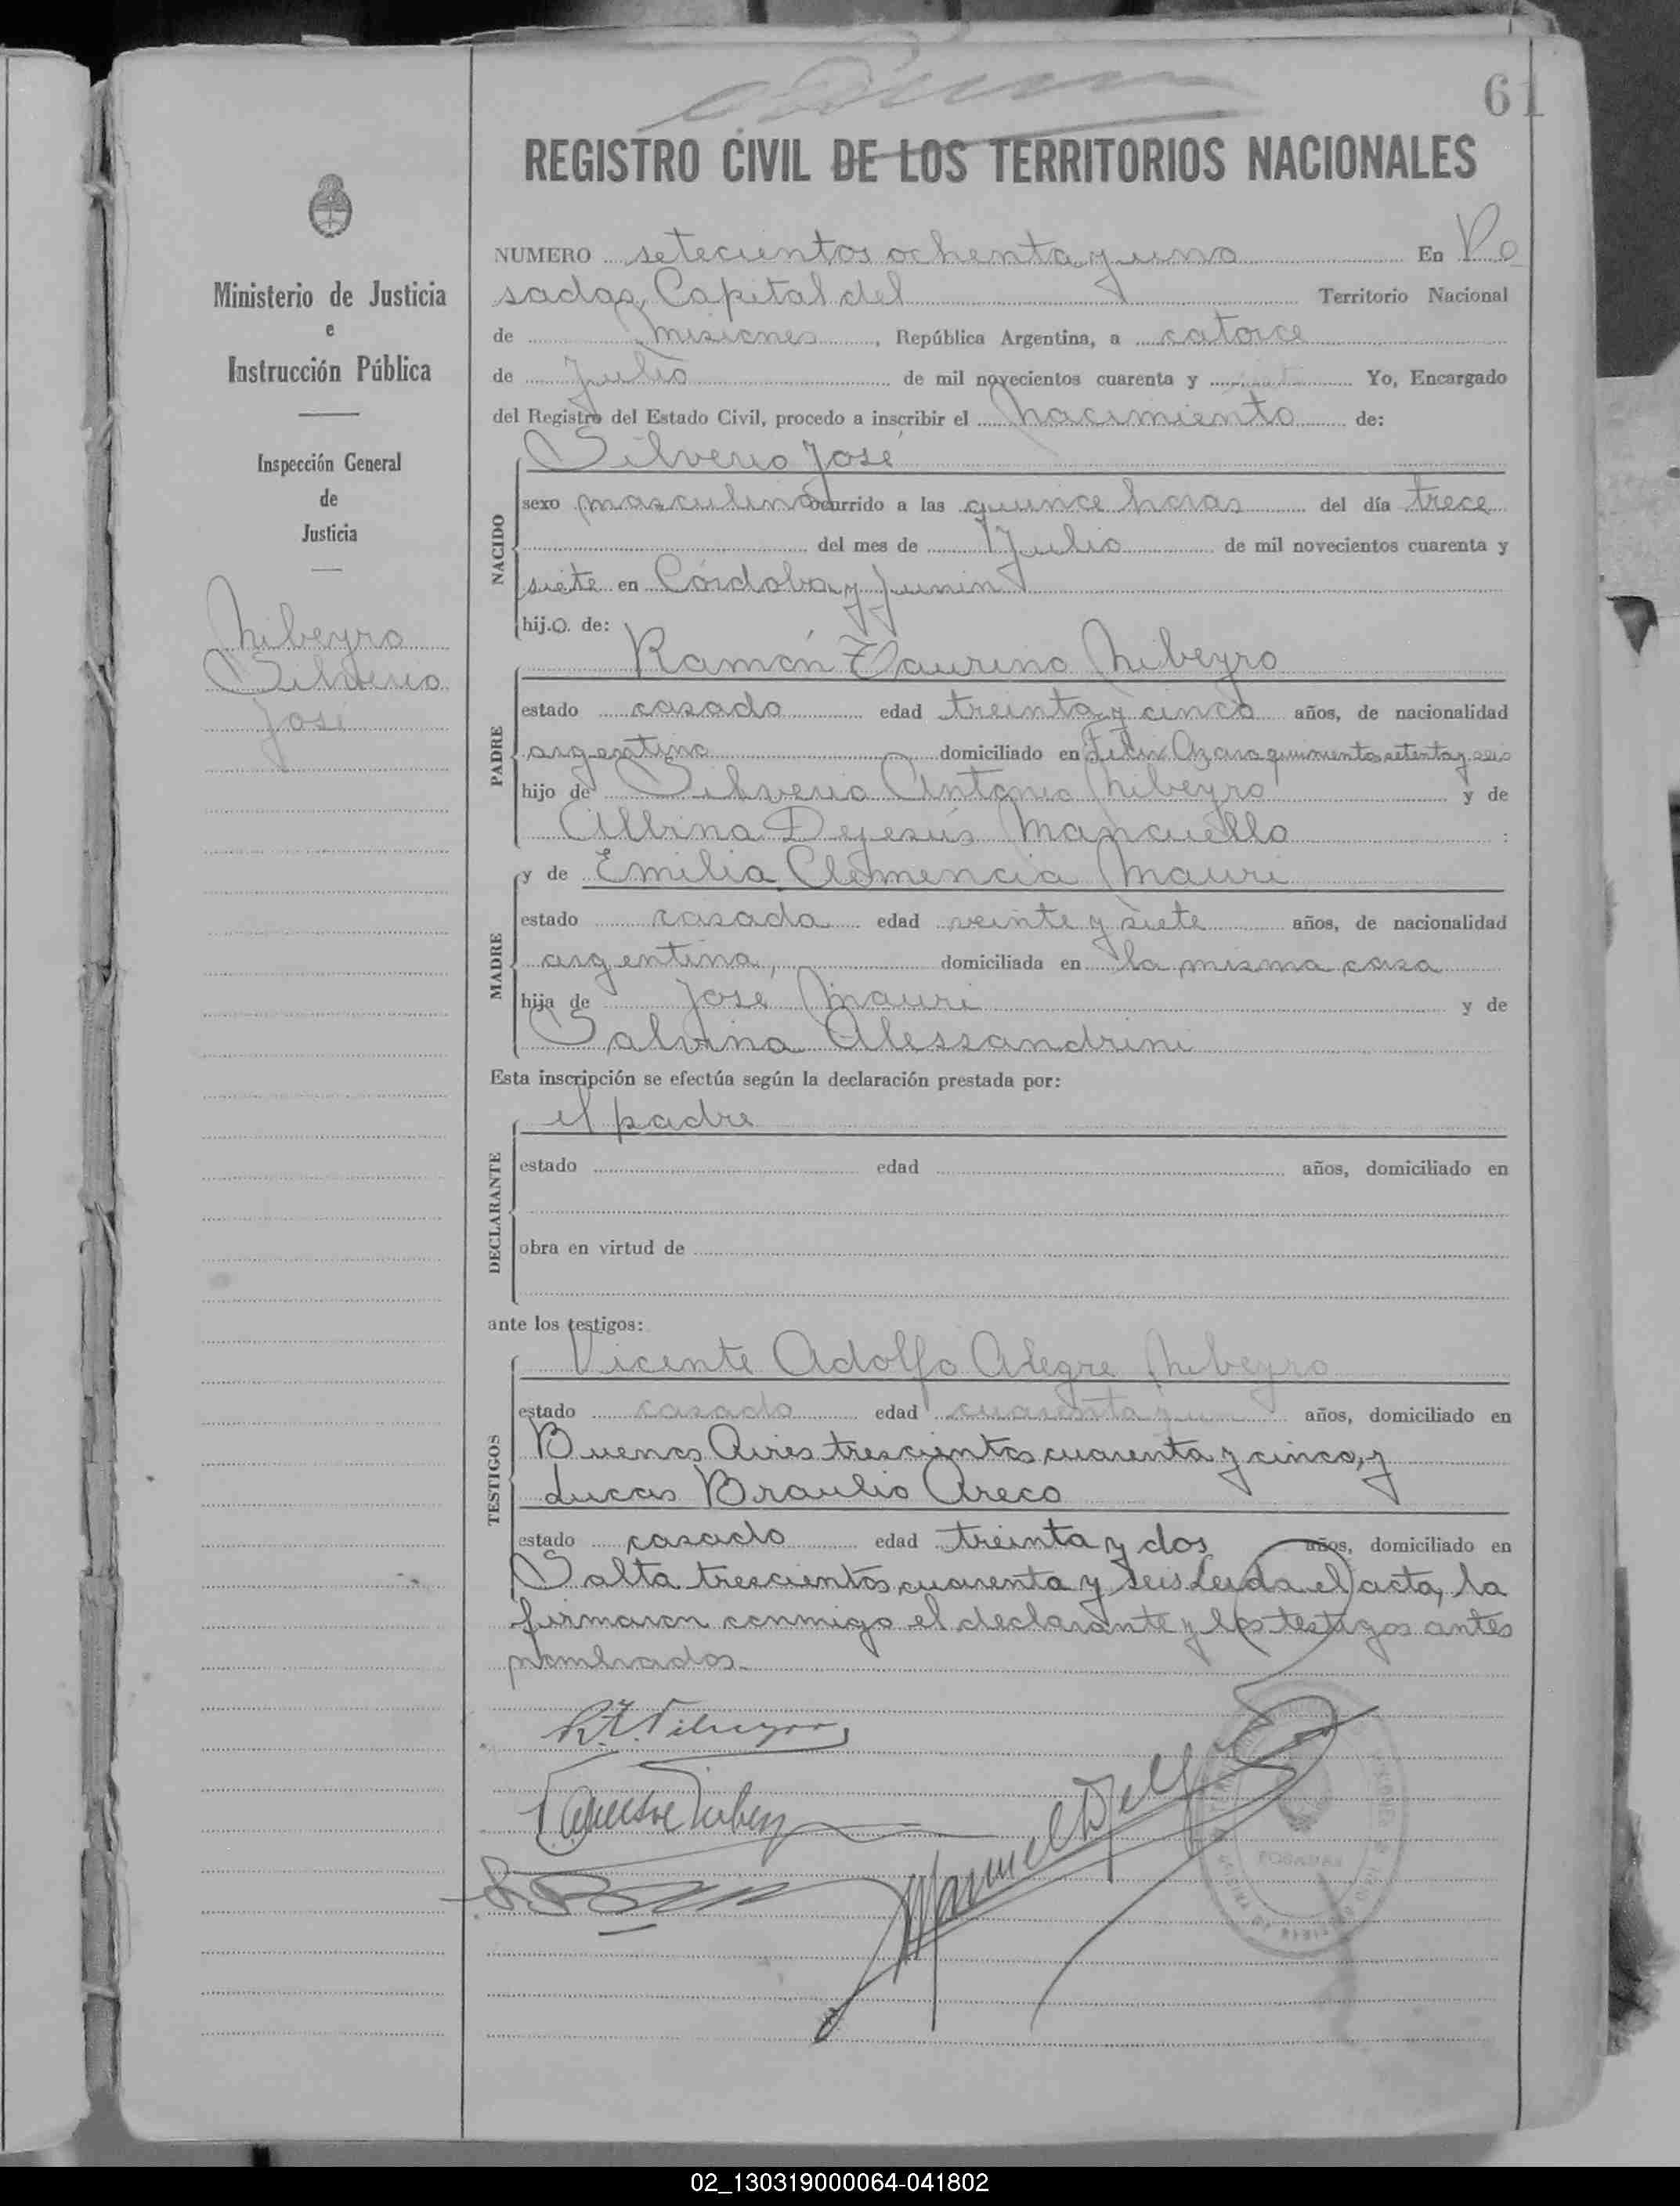 61
REGISTRO CIVIL DE LOS TERRITORIOS NACIONALES
Ministerio de Justicia
e
Instrucción Pública
Inspección General
de
Justicia
Nibeyro
Silverio
José
NUMERO setecientos ochenta y uno En Po
sadas, Capital del Territorio Nacional
de Misiones, República Argentina, a catorce
de Julio de mil novecientos cuarenta y Yo, Encargado
del Registro del Estado Civil, procedo a inscribir el nacimiento de:
NACIDO
Silverio José
sexo masculino ocurrido a las quince horas del día trece
del mes de Julio de mil novecientos cuarenta y
siete en Córdoba y Junin
hij.o. de:
PADRE
Ramón Taurino Nibeyro
estado casado edad treinta y cinco años, de nacionalidad
argentino domiciliado en Felix Azara quinientos setenta y seis
hijo de Silverio Antonio Nibeyro y de
Albina Dejesús Mancuello
MADRE
y de Emilia Clemencia Mauri
estado casada edad veinte y siete años, de nacionalidad
argentina, domiciliada en la misma casa
hija de José Mauri y de
Salvina Alessandrini
Esta inscripción se efectúa según la declaración prestada por:
DECLARANTE
el padre
estado edad años, domiciliado en
obra en virtud de
ante los testigos:
TESTIGOS
Vicente Adolfo Alegre Nibeyro
estado casado edad cuarenta y años, domiciliado en
Buenos Aires trescientos cuarenta y cinco, y
Lucas Braulio Areco
estado casado edad treinta y dos años, domiciliado en
Salta trescientos cuarenta y seis Leida el acta, la
firmaron conmigo el declarante y los testigos antes
nombrados.
POSADAS
02_130319000064-041802